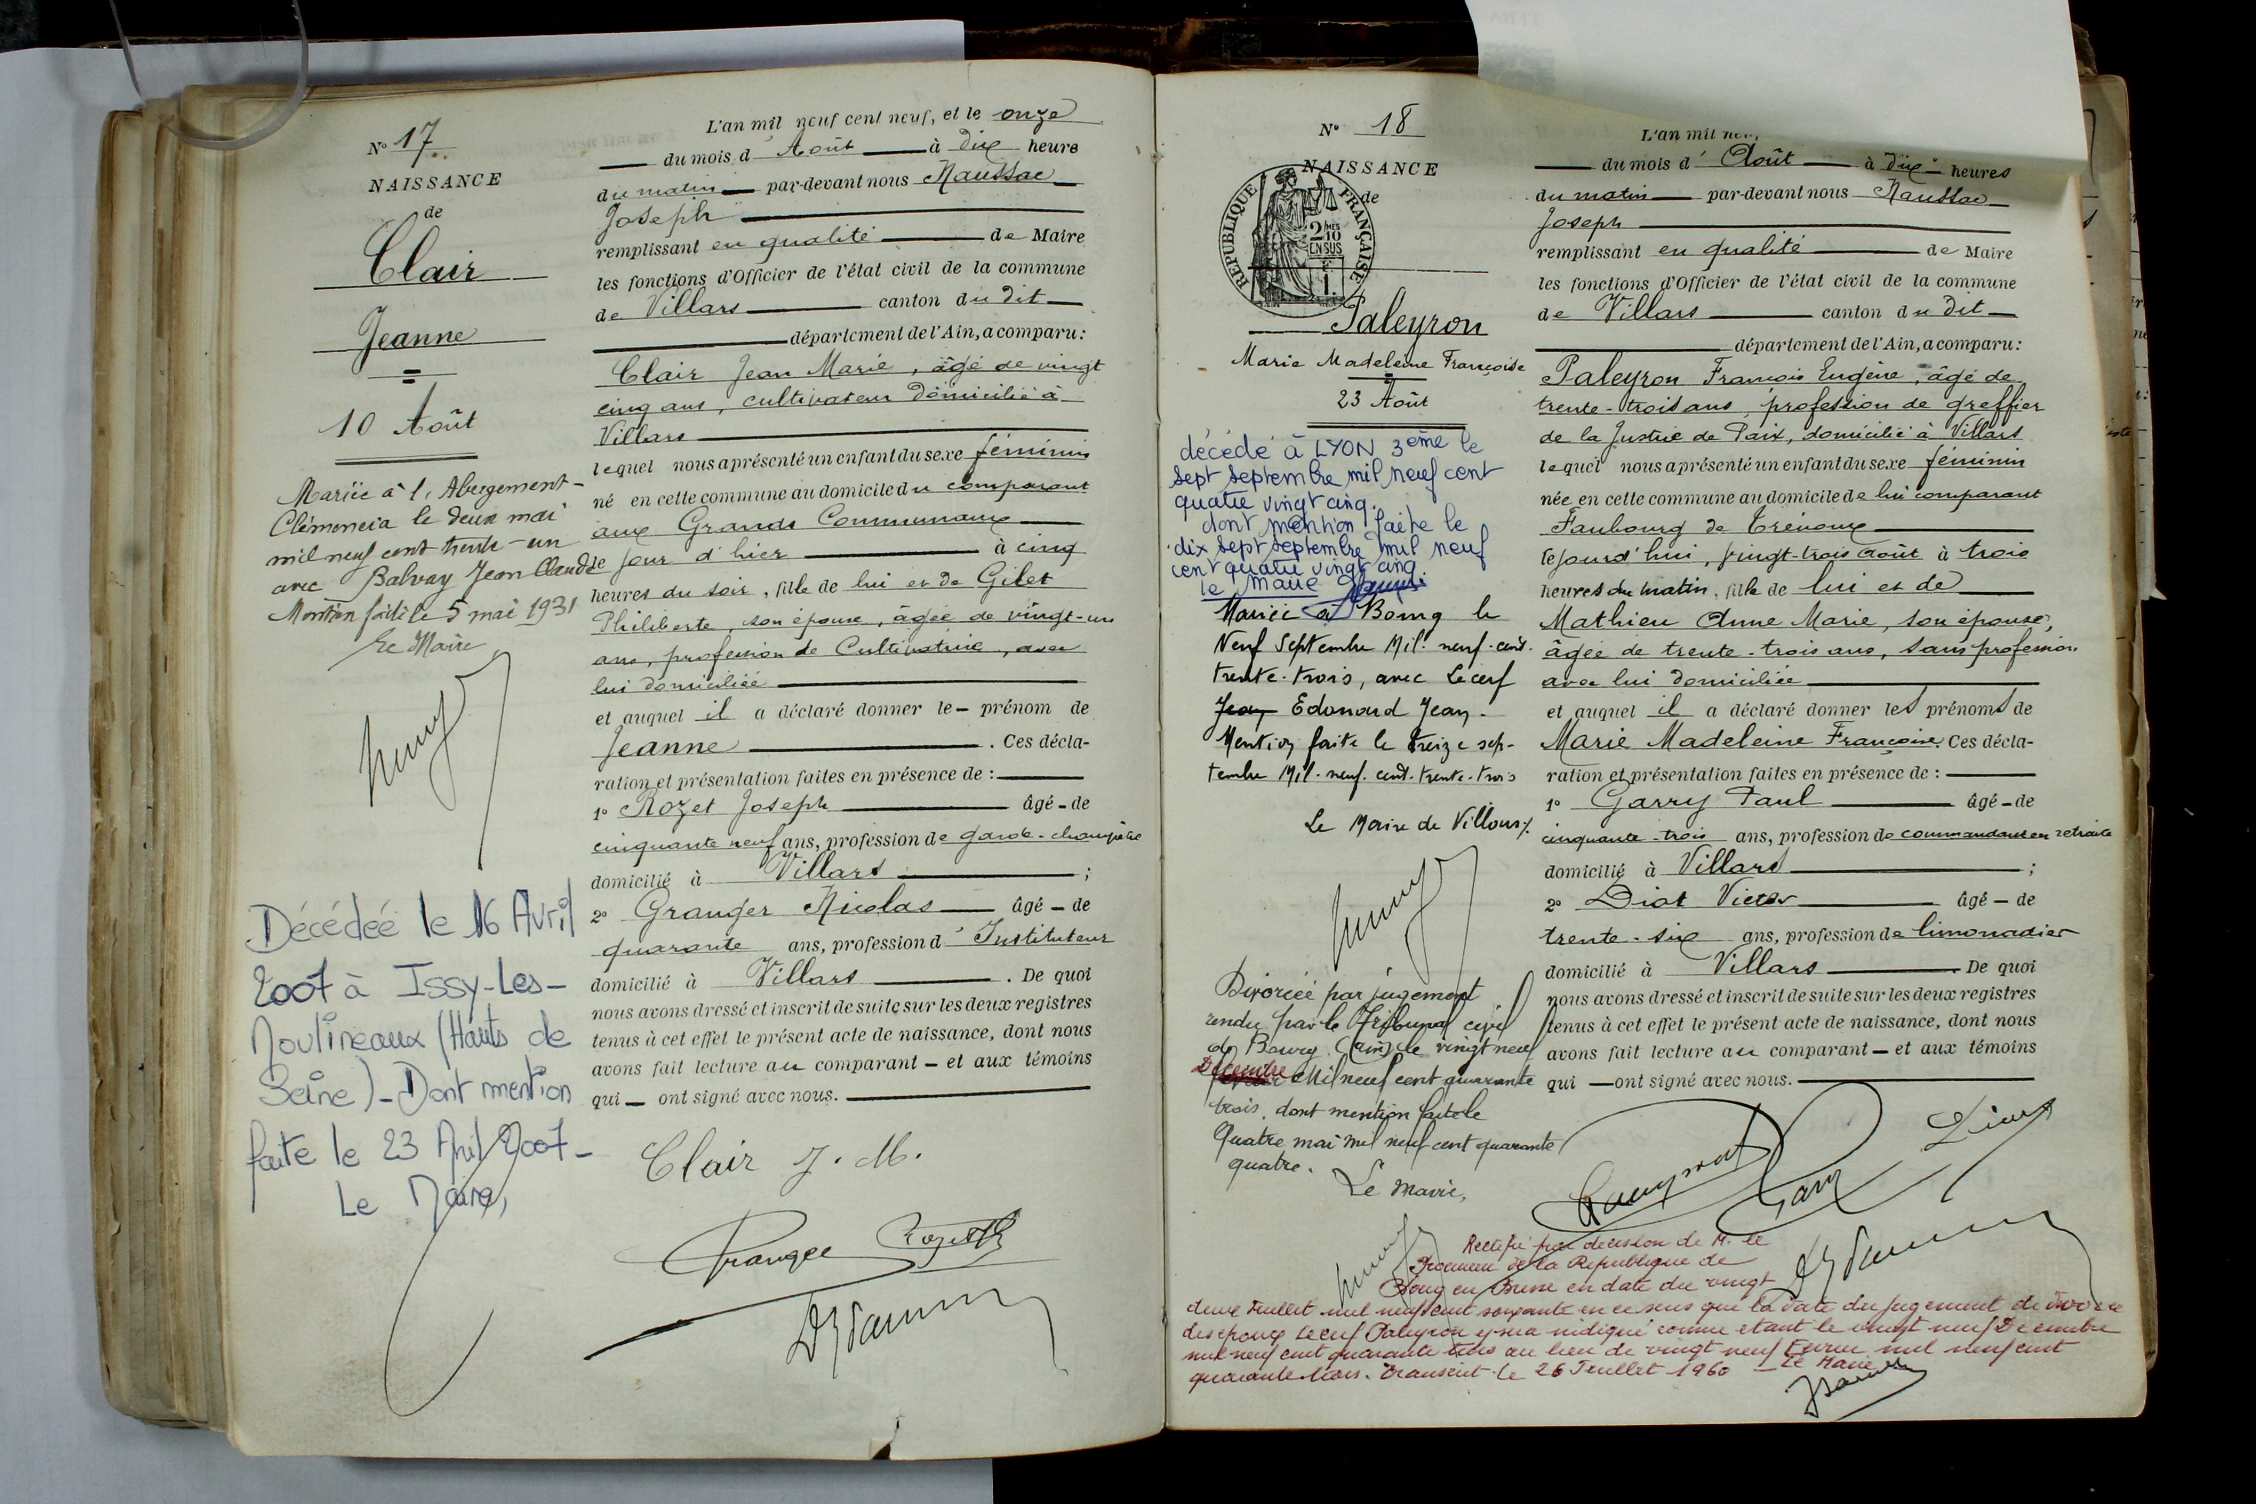 N° 17
NAISSANCE
de
Clair
Jeanne
10 Août
Mariée à l'Abergement-
Clémencia le deux mai
mil neuf cent trente-un
avec Balvay Jean Claude
Mention faite le 5 mai 1931
Le Maire
Décédée le 16 Avril
2007 à Issy-Les-
Moulineaux (Hauts de
Seine) - Dont mention
faite le 23 Avril 2007 -
Le Maire,
L'an mil neuf cent neuf, et le onze
du mois d'Août à dix heure
du matin par-devant nous Naussac
Joseph
remplissant en qualité de Maire
les fonctions d'Officier de l'état civil de la commune
de Villars canton du dit
département de l'Ain, a comparu:
Clair Jean Marie, âgé de vingt
cinq ans, cultivateur domicilié à
Villars
lequel nous a présenté un enfant du sexe féminin
né en cette commune au domicile du comparant
aux Grands Communaux
le jour d'hier à cinq
heures du soir, fille de lui et de Gilet
Philiberte, son épouse, âgée de vingt-un
ans, profession de Cultivatrice, avec
lui domiciliée
et auquel il a déclaré donner le prénom de
Jeanne. Ces décla-
ration et présentation faites en présence de :
1° Rozet Joseph âgé de
cinquante neuf ans, profession de garde-champêtre
domicilié à Villars ;
2° Granger Nicolas âgé de
quarante ans, profession d'Instituteur
domicilié à Villars. De quoi
nous avons dressé et inscrit de suite sur les deux registres
tenus à cet effet le présent acte de naissance, dont nous
avons fait lecture au comparant et aux témoins
qui ont signé avec nous.
Clair J. M.
Granger Rozet
N° 18
NAISSANCE
de
REPUBLIQUE FRANÇAISE
2/10 EN SUS
Paleyron
Marie Madeleine Françoise
23 Août
décédé à LYON 3ème le
sept septembre mil neuf cent
quatre vingt cinq.
dont mention faite le
dix sept septembre mil neuf
cent quatre vingt cinq
le Maire
Mariée à Bourg le
Neuf Septembre Mil neuf cent
trente-trois, avec Lecerf
Jean Edouard Jean.
Mention faite le treize sep-
tembre Mil neuf cent trente-trois
Le Maire de Villars
Divorcée par jugement
rendu par le Tribunal civil
de Bourg (Ain) le vingt neuf
Décembre Mil neuf cent quarante
trois. dont mention faite le
Quatre mai mil neuf cent quarante
quatre.
Le Maire,
L'an mil neu
du mois d'Août à dix heures
du matin par-devant nous Naussac
Joseph
remplissant en qualité de Maire
les fonctions d'Officier de l'état civil de la commune
de Villars canton du dit
département de l'Ain, a comparu:
Paleyron François Eugène, âgé de
trente-trois ans, profession de greffier
de la Justice de Paix, domicilié à Villars
lequel nous a présenté un enfant du sexe féminin
née en cette commune au domicile de lui comparant
Faubourg de Trévoux
le jourd'hui, vingt-trois août à trois
heures du matin, fille de lui et de
Mathieu Anne Marie, son épouse,
âgée de trente-trois ans, sans profession
avec lui domiciliée
et auquel il a déclaré donner les prénoms de
Marie Madeleine Françoise. Ces décla-
ration et présentation faites en présence de :
1° Garry Paul âgé de
cinquante-trois ans, profession de commandant en retraite
domicilié à Villars ;
2° Diot Victor âgé de
trente-six ans, profession de limonadier
domicilié à Villars. De quoi
nous avons dressé et inscrit de suite sur les deux registres
tenus à cet effet le présent acte de naissance, dont nous
avons fait lecture au comparant et aux témoins
qui ont signé avec nous.
Rectifié par décision de M. le
Procureur de la République de
Bourg en Bresse en date du vingt
deux Juillet mil neuf cent soixante en ce sens que la date du jugement de divorce
des époux Lecerf Paleyron y sera indiqué comme étant le vingt neuf Décembre
mil neuf cent quarante trois au lieu de vingt neuf Février mil neuf cent
quarante trois. Transcrit le 26 Juillet 1960 - Le Maire